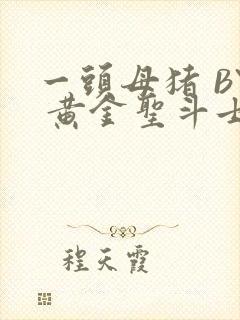 一頭母猪 BY
黄金聖斗士
程天霞